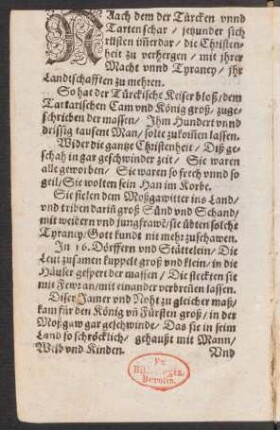 NAach dem der Türcken vnnd
Tarten schar / jetzunder sich
rüsten im̃erdar / die Christen-
heit zu verhergen / mit jhrer
Macht vnnd Tyraney / jhr
Landtschafften zu mehren.
So hat der Türckische Keiser bloß / dem
Tartarischen Cam vnd König groß / zuge-
schrieben der massen / Ihm Hundert vnnd
drissig tausent Man / solte zukom̃en lassen.
Wider die gantze Christenheit / Diß ge-
schah in gar geschwinder zeit / Sie waren
all geworben / Sie waren so frech vnnd so
geil / Sie wolten sein Han im Korbe.
Sie fielen dem Moßgawitter ins Land /
vnd triben dariñ groß Sünd vnd Schand /
mit weibern vnd jungfrawẽ / sie übten solche
Tyraney / Gott kundt nit mehr zuschawen.
In 16. Dörffern vnd Stättelein / Die
Leut zusamen kuppelt groß vnd klein / in die
Häuser gespert der massen / Die steckten sie
mit Fewr an / mit einander verbreñen lassen.
Diser Jamer vnd Noht zu gleicher maß /
kam für den König vñ Fürsten groß / in der
Moßgaw gar geschwinde / Das sie in seim
Land so schröcklich / gehaußt mit Mann /
Weib vnd Kinden.
Vnd
Ex
Biblioth. Regia
Berolin.